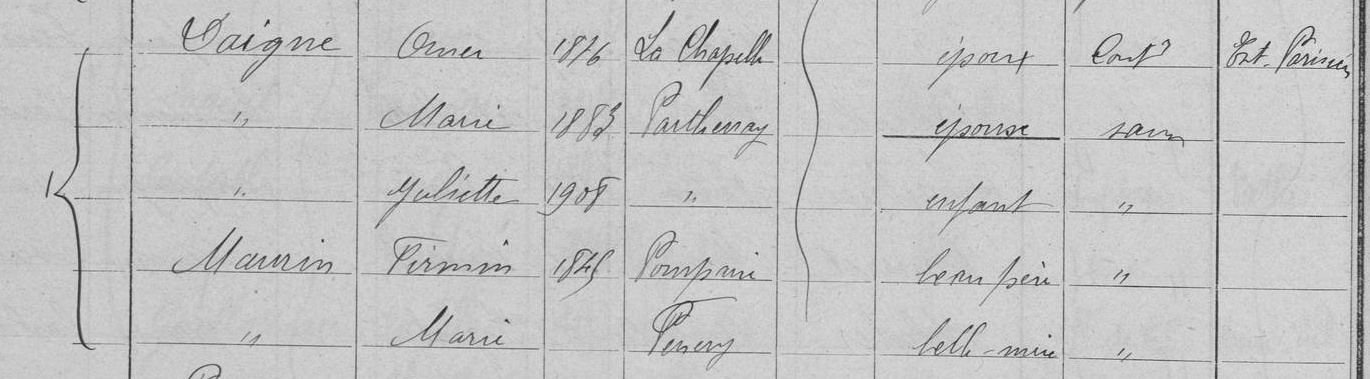 Daigne Omer 1876 La Chapelle époux Cont^r Ext. Parisien
" Marie 1883 Parthenay épouse sans
1 " Juliette 1908 " enfant "
Maurin Firmin 1845 Pompaire beau père "
" Marie belle-mère "